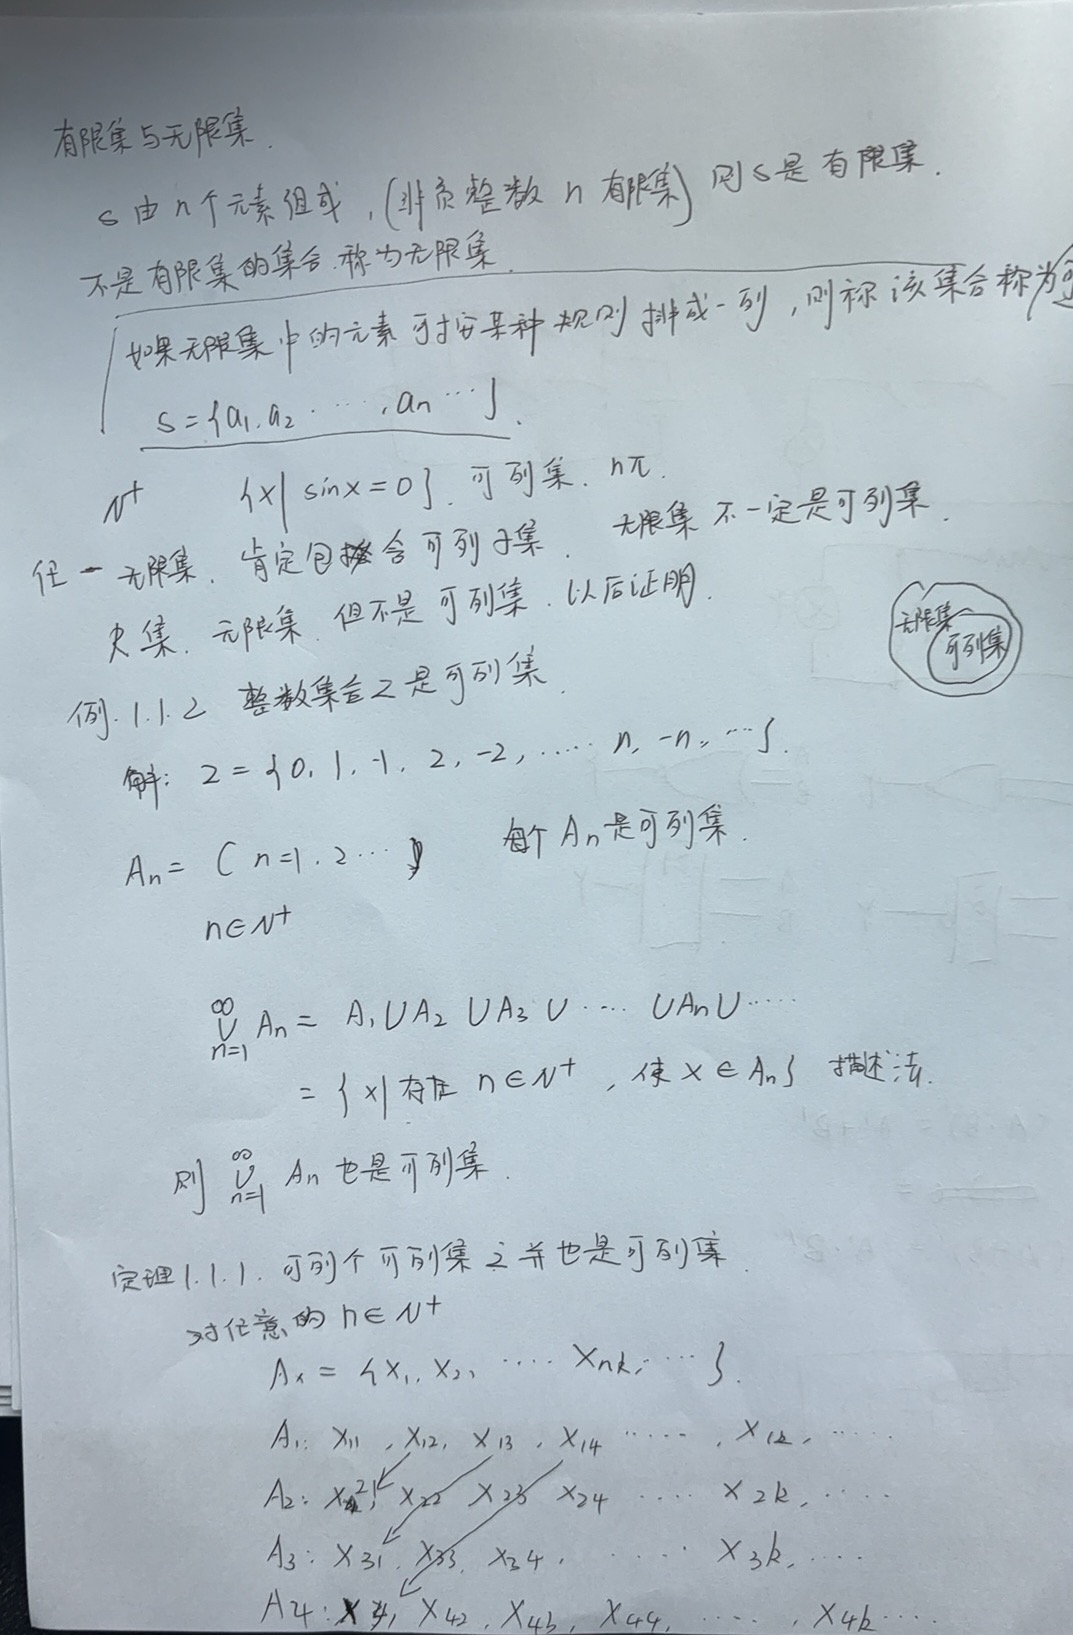 有限集与无限集.
S 由 n 个元素组成, (非负整数 n 有限集) 则 S 是有限集.
不是有限集的集合.称为无限集.
如果无限集中的元素可按某种规则排成一列, 则称该集合称为可
S = {a₁, a₂ ‥‥, aₙ …}.
N⁺ {x| sinx = 0}. 可列集. nπ.
任一无限集. 肯定包含可列子集. 无限集不一定是可列集.
实集. 无限集. 但不是可列集. 以后证明.
无限集
可列集
例.1.1.2 整数集合Z是可列集.
解: Z = {0, 1, -1, 2, -2, ‥‥‥ n, -n, …}.
Aₙ = (n=1, 2 …) 每个 Aₙ 是可列集.
n∈N⁺
∞∪n=1 Aₙ = A₁∪A₂∪A₃∪ ‥‥ ∪Aₙ∪ ‥‥
= {x| 存在 n∈N⁺, 使 x∈Aₙ} 描述法.
则 ∞∪n=1 Aₙ 也是可列集.
定理1.1.1. 可列个可列集之并也是可列集.
对任意的 n∈N⁺
Aₙ = {x₁, x₂, ‥‥ xₙₖ, …}.
A₁: x₁₁, x₁₂, x₁₃, x₁₄ ‥‥‥, x₁ₖ, ‥‥
A₂: x₂₁, x₂₂ x₂₃ x₂₄ ‥‥ x₂ₖ, ‥‥
A₃: x₃₁, x₃₃, x₃₄, ‥‥‥ x₃ₖ, ‥‥
A₄: x₄₁, x₄₂, x₄₃, x₄₄, ‥‥, x₄ₖ ‥‥